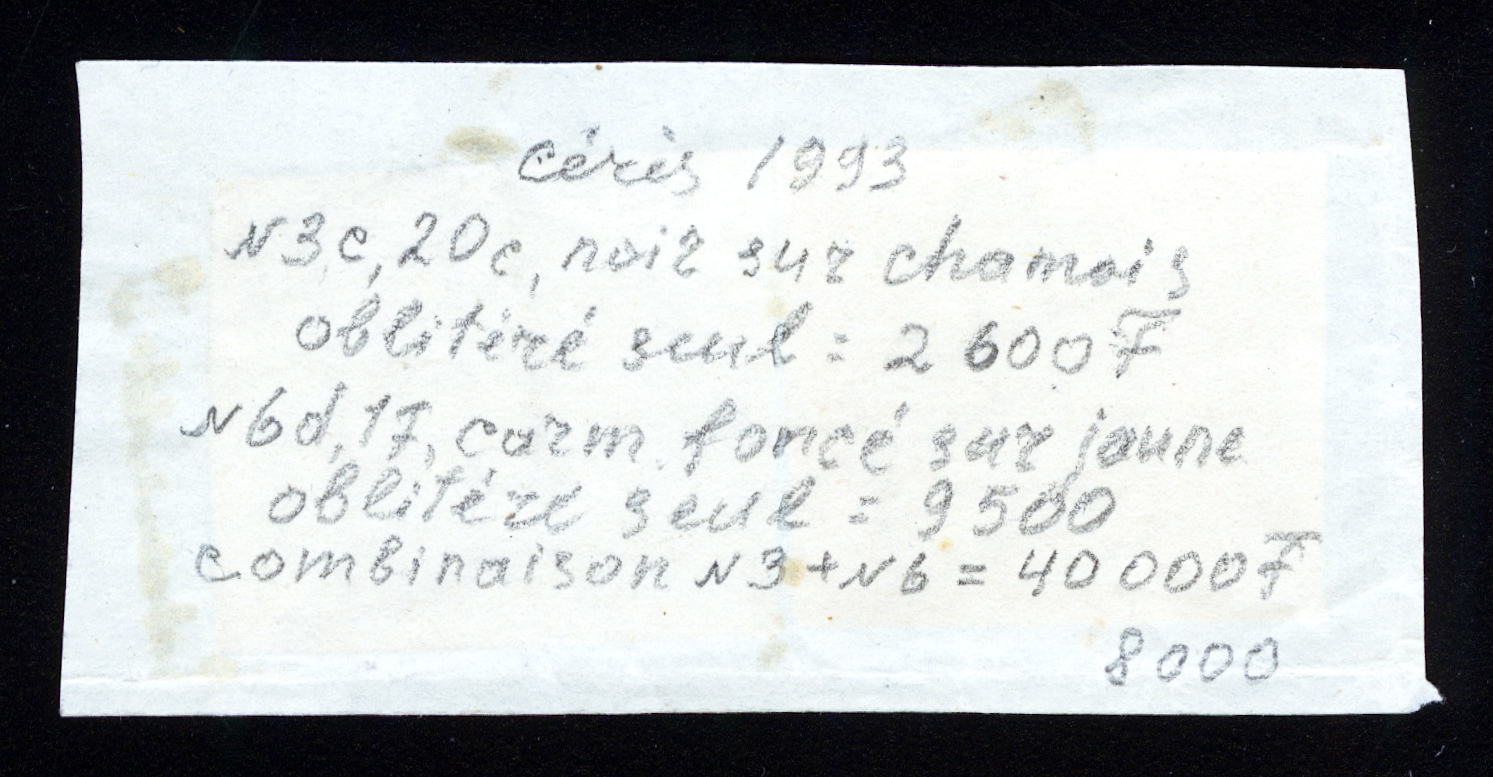 Cérès 1993
N3c, 20c, noir sur chamois
oblitéré seul = 2 600 F
N6d, 1F, carm. foncé sur jaune
oblitéré seul = 9500
combinaison N3+N6 = 40 000 F
8000